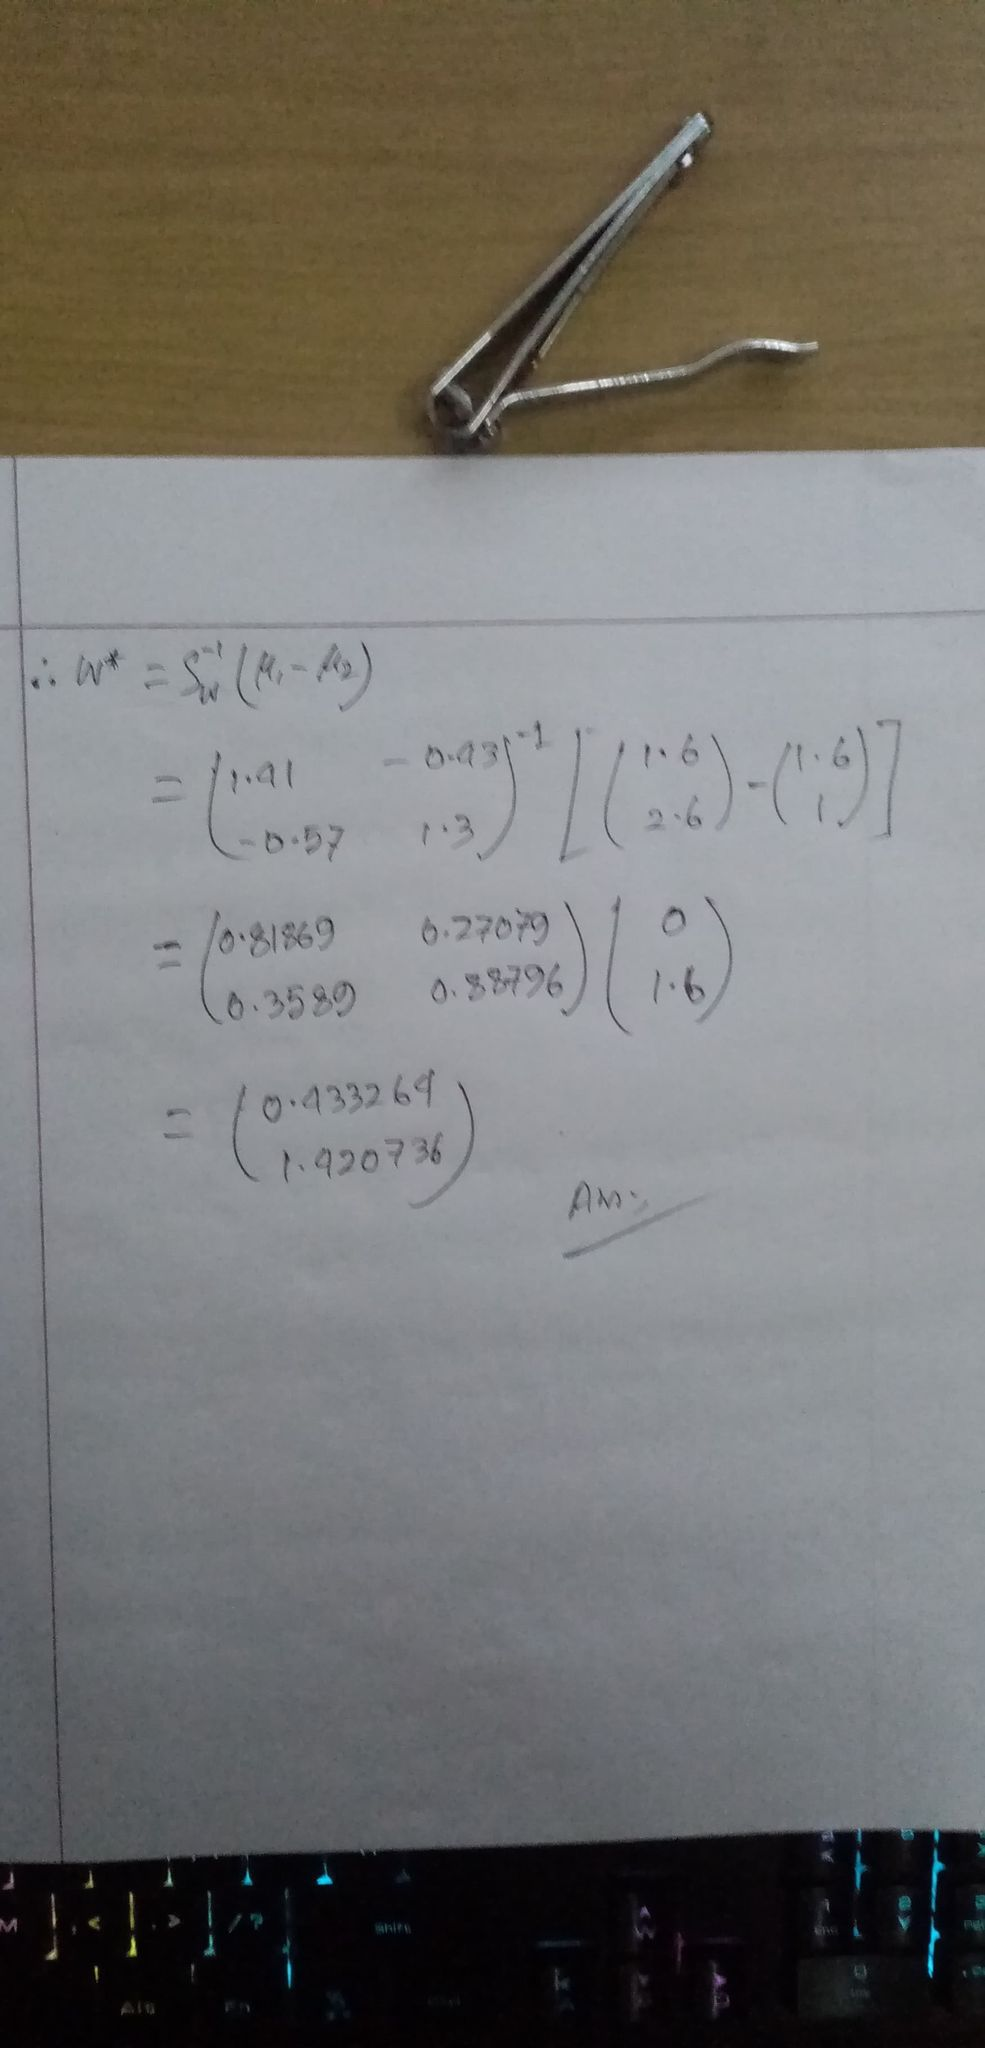 ∴ W* = S_W⁻¹ (μ₁ - μ₂)
= (1.41 -0.43
-0.57 1.3)⁻¹ [(1.6
2.6) - (1.6
1)]
= (0.81869 0.27079
0.3589 0.88796) (0
1.6)
= (0.433264
1.420736)
Ans:
M , < . > / ? Shift
Alt Fn